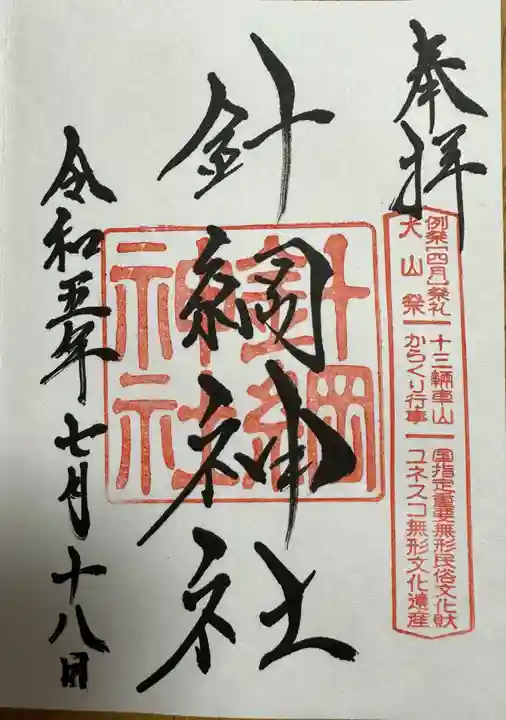 奉拝
例祭[四月]祭礼
犬山祭
十三輛車山
からくり行事
国指定重要無形民俗文化財
ユネスコ無形文化遺産
針綱神社
針綱
神社
令和五年七月十八日